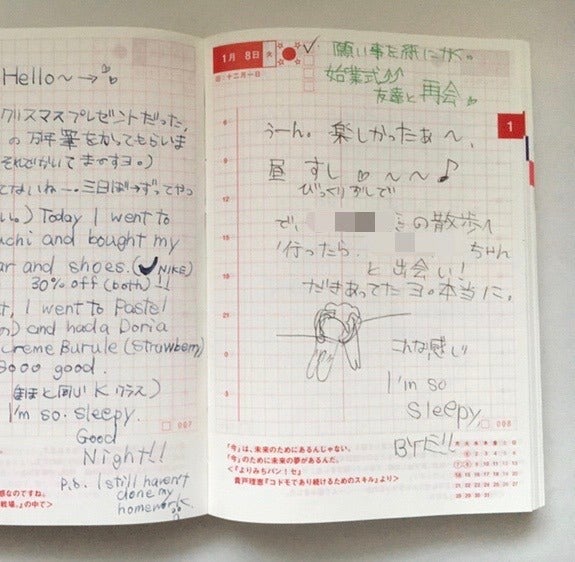 Hello～→
クリスマスプレゼントだった、
の万年筆をかってもらいま
それでかいてますヨ。)
てないね…三日ば→ずってやっ
Today I went to
achi and bought my
ar and shoes. (✓NIKE)
30% off (both)!!
t, I went to Pastel
and had a Doria
creme Burule (strawberry)
good.
I'm so sleepy.
Good
Night!!
P.b. I still haven't
done my
homework.
007
感なのですね。
戦場。』の中で>
1月 8日 火
旧:十二月一日
✓ 願い事を紙にかく。
始業式♪♪
友達と再会
1
うーん。楽しかったぁ～、
昼 すし ～～♪
びっくりずしで
で、 の散歩へ
行ったら、 ちゃん
と出会い!
だきあってたヨ。本当に。
こんな感じ
I'm so
sleepy
BYだ!!
008
「今」は、未来のためにあるんじゃない。
「今」のために未来の夢があるんだ。
<『よりみちパン!セ』
貴戸理恵『コドモであり続けるためのスキル』より>